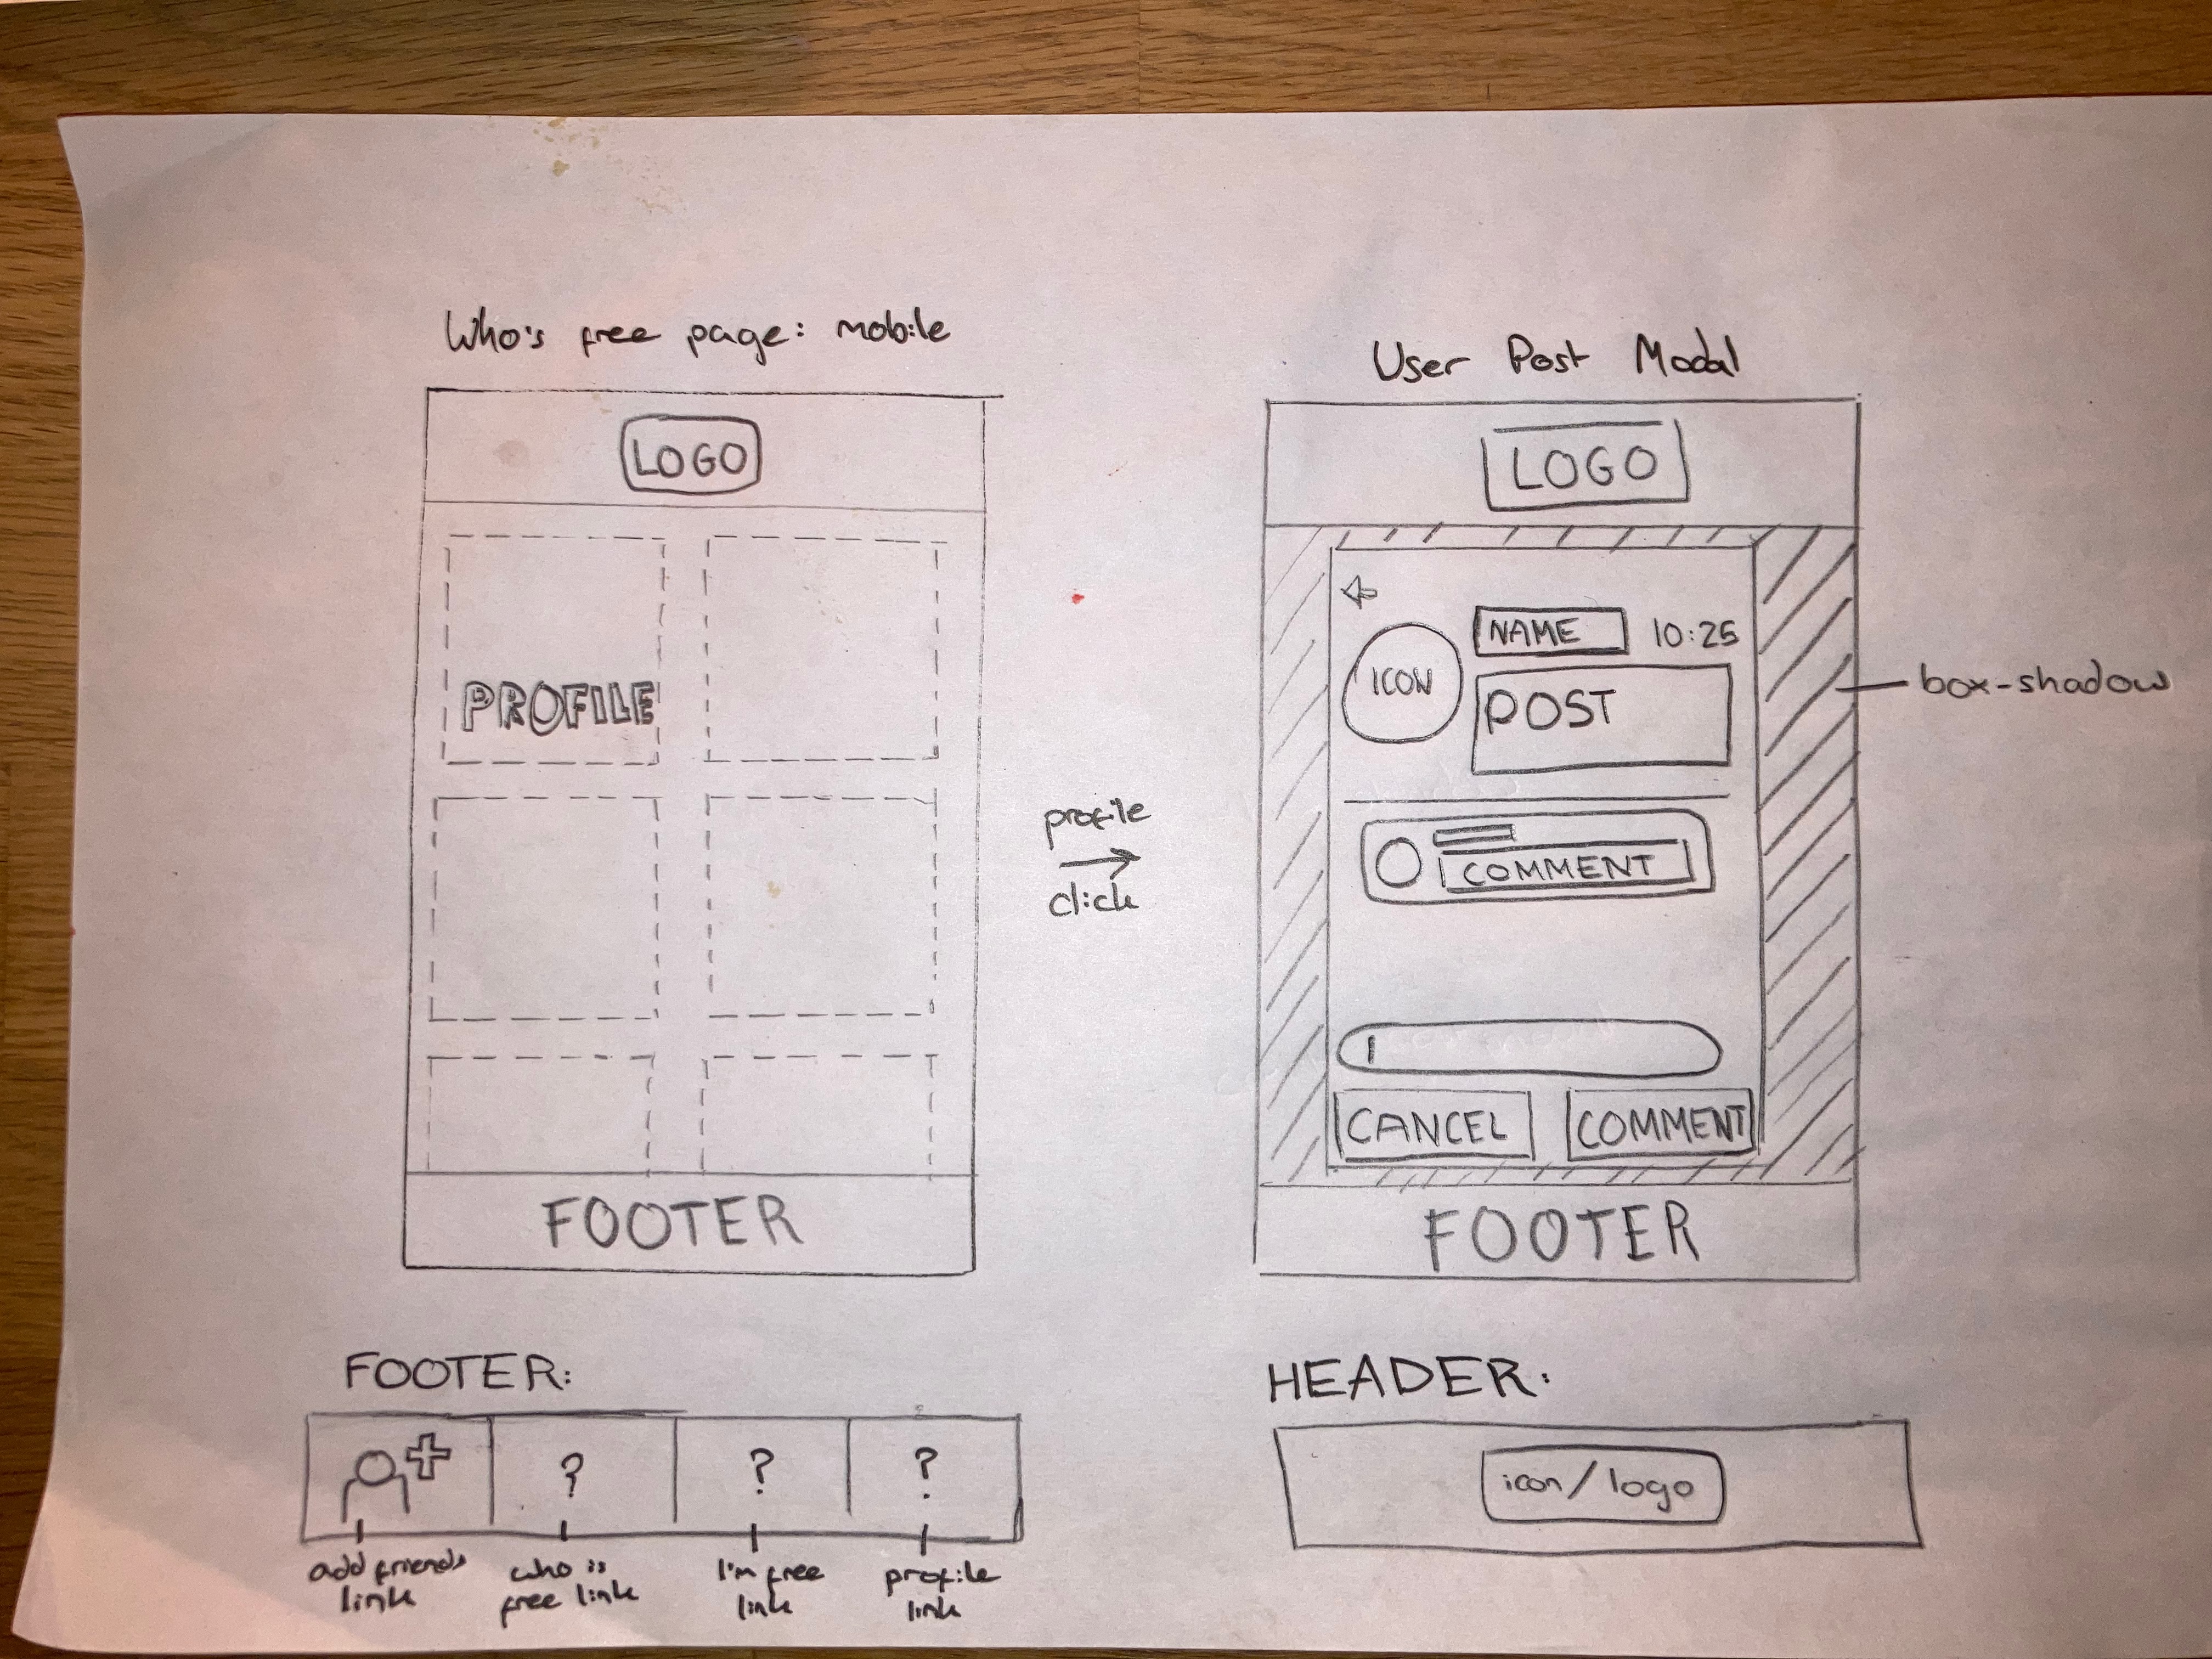 Who's free page: mobile
LOGO
PROFILE
FOOTER
profile
click
User Post Modal
LOGO
NAME 10:25
ICON
POST
box-shadow
COMMENT
CANCEL COMMENT
FOOTER
FOOTER:
? ? ?
add friends
link
who is
free link
I'm free
link
profile
link
HEADER:
icon/logo